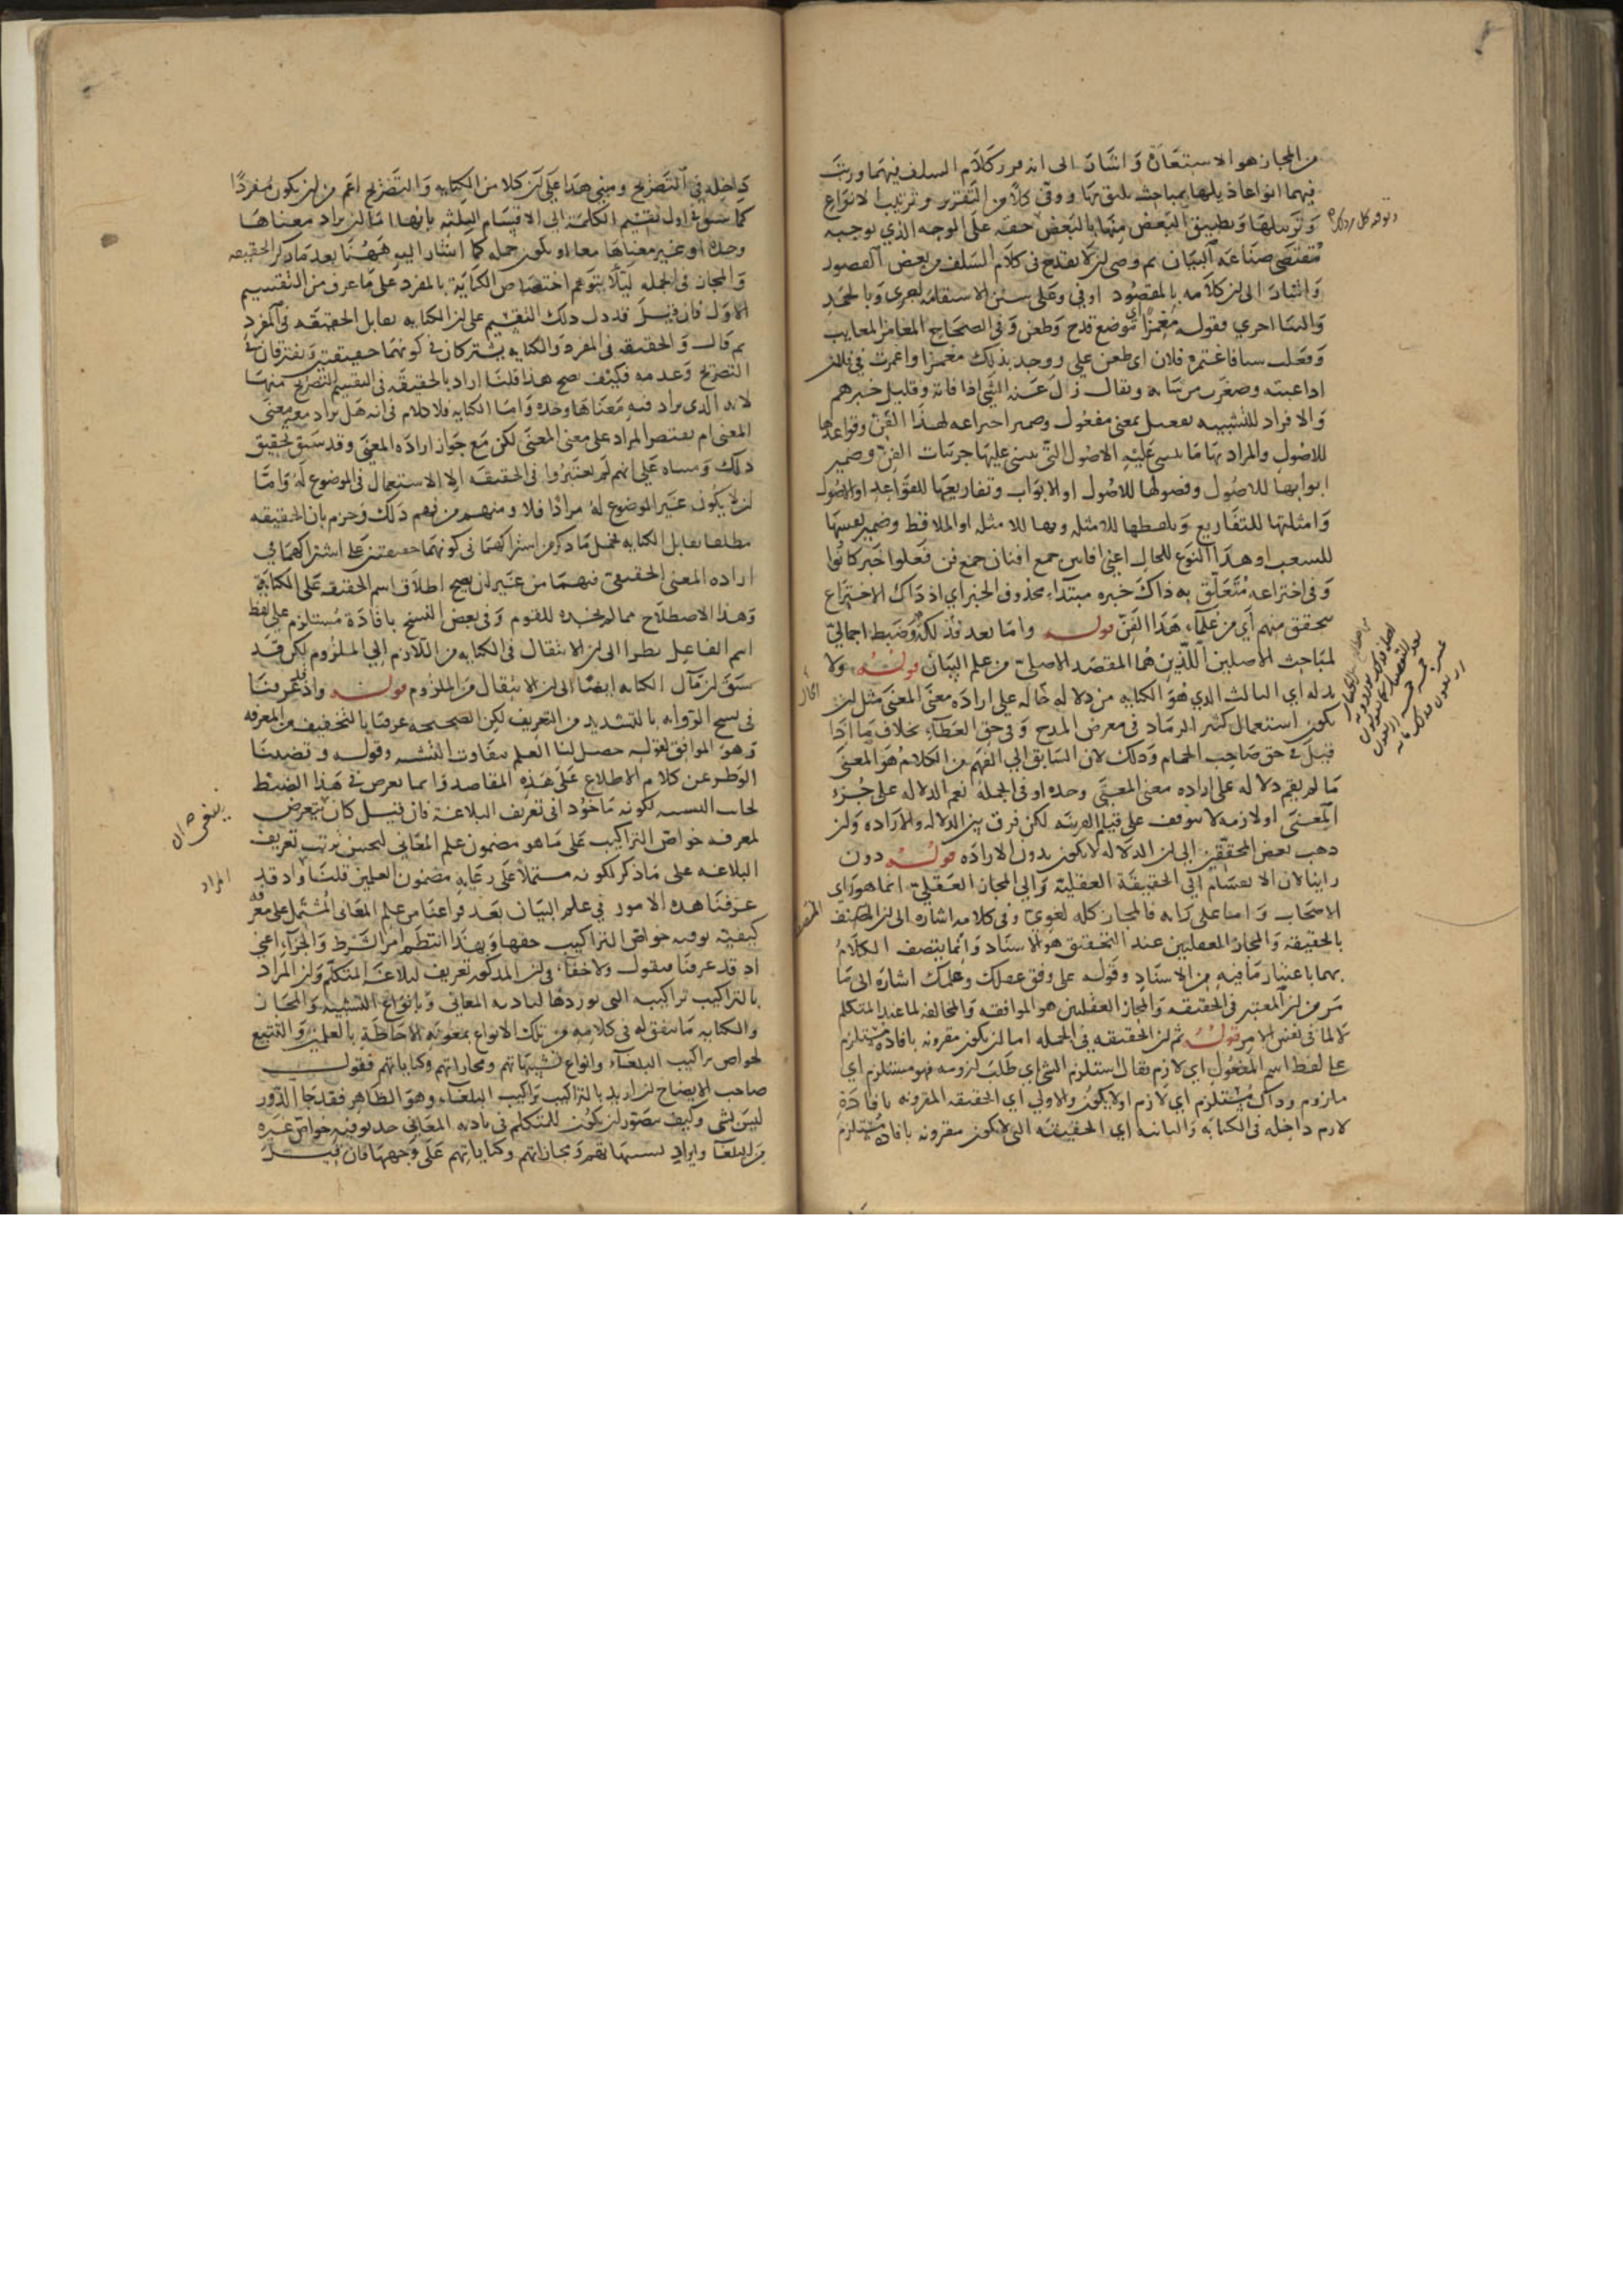 من المجاز هو الاستعارة واشار الى انه قرر كلام السلف فيهما ورتب
فيهما انواعا ذيلها بمباحث تليق بها ووفى كلا من التقرير وترتيب الانواع
وتزييلها وتطبيق البعض منها بالبعض حقه على الوجه الذي توجبه
مقتضى صناعة البيان ثم وصى ان لا يقدح في كلام السلف من بعض القصور
واشار الى ان كلامه بالمقصود اوفى وعلى سنن الاستقامة اجرى وبالحمد
والثنا احرى فقوله مغمزا اي موضع قدح وطعن وفي الصحاح المغامز المعايب
وفعلت شيا فاغتمزه فلان اى طعن على ووجد بذلك مغمزا واغمزت في فلان
اذا عبته وصغرت من شانه ويقال زل عنه الشي اذا فاته وقليل خبرهم
والافراد للتشبيه بفعيل بمعنى مفعول وضمير اختراعه لهذا الفن وقواعدها
للاصول والمراد بها ما يبتني عليه الاصول التي يبتنى عليها جزئيات الفن وضمير
ابوابها للاصول وفصولها للاصول او الابواب وتفاريعها للقواعد او الاصول
وامثلتها للتفاريع وتلقطها للامثلة وبها للامثلة او الملاقط وضمير
او هذا النوع للحال اعني افانين جمع افنان جمع فن فعلوا خبر كانوا
وفي اختراعه متعلق به ذاك خبره مبتداء محذوف الخبر اي اذ ذاك الاختراع
متحقق منهم اي من علماء هذا الفن قوله واما بعد فذلكة وضبط اجمالي
لمباحث الاصلين اللذين هما المقصد الاصلي من علم البيان قوله ولا
بد له اي الثالث الذي هو الكناية من دلالة حاله على ارادة معنى المعنى مثل ان
يكون استعمال كثير الرماد في معرض المدح وفي حق العظماء بخلاف ما اذا
قيل في حق صاحب الحمام وذلك لان السابق الى الفهم من الكلام هو المعنى
ما لم يقم دلالة على ارادة معنى المعنى وحده او في الجملة نعم الدلالة على جزء
المعنى او لازمه لا يتوقف على قيام القرينة لكن فرق بين الدلالة والارادة وان
ذهب بعض المحققين الى ان الدلالة لا يكون بدون الارادة قوله دون
راينا لان الانقسام الى الحقيقة العقلية والى المجاز العقلي انما هو راى
الاصحاب واما على رايه فالمجاز كله لغوي وفى كلامه اشارة الى ان المتصف
بالحقيقة والمجاز العقليين عند التحقيق هو الاسناد وانما يتصف الكلام
بهما باعتبار ما فيه من الاسناد وقوله على وفق عقلك وعلمك اشارة الى ما
مر من ان المعتبر في الحقيقة والمجاز العقليين هو الموافقة والمخالفة لما عند المتكلم
لا لما في نفس الامر قوله ثم ان الحقيقة في الجملة اما ان يكون مقرونة بافادة مستلزم
على لفظ اسم المفعول اي لازم يقال استلزم الشي اي طلب لزومه فهو مستلزم اي
ملزوم وذاك مستلزم اي لازم او لا يكون والاولى اي الحقيقة المقرونة بافادة
لازم داخلة في الكناية والثانية اي الحقيقة التي لا يكون مقرونة بافادة مستلزم
داخلة في التصريح ومبنى هذا على ان كلا من الكناية والتصريح اعم من ان يكون مفردا
كما سبق في اول تقسيم الكلمة الى الاقسام الثلثة بانها اما ان يراد معناها
وحده او غير معناها معا او يكون جملة كما اشار اليه ههنا بعد ما ذكر الحقيقة
والمجاز في الجملة ليلا يتوهم اختصاص الكناية بالمفرد على ما عرف من التقسيم
الاول فان قيل قد دل ذلك التقسيم على ان الكناية تقابل الحقيقة في المفرد
ثم قال والحقيقة في المفرد والكناية يشتركان في كونهما حقيقتين ويفترقان في
التصريح وعدمه فكيف يصح هذا قلنا اراد بالحقيقة في التقسيم التصريح منها
لانه الذي يراد فيه معناها وحده واما الكناية فلا كلام في انه هل يراد معه معنى
المعنى ام يقتصر المراد على معنى المعنى لكن مع جواز ارادة المعنى وقد سبق تحقيق
ذلك ومبناه على انهم لم يعتبروا في الحقيقة الا الاستعمال في الموضوع له واما
ان لا يكون غير الموضوع له مرادا فلا ومنهم من فهم ذلك وجزم بان الحقيقة
مطلقا تقابل الكناية فحمل ما ذكر من اشتراكهما في كونهما حقيقتين على اشتراكهما في
ارادة المعنى الحقيقى فيهما من غير ان يصح اطلاق اسم الحقيقة على الكناية
وهذا الاصطلاح مما لم نجده للقوم وفي بعض النسخ بافادة مستلزم على لفظ
اسم الفاعل نظرا الى ان الانتقال في الكناية من اللازم الى الملزوم لكن قد
سبق ان مآل الكناية ايضا الى ان الانتقال من الملزوم قوله واذ قد عرفنا
في نسخ الرواية بالتشديد من التعريف لكن الصحيحة عرفنا بالتخفيف من المعرفة
وهو الموافق لقوله حصل لنا العلم بتفاوت التشبيه وقوله وقضينا
الوطر عن كلام الاطلاع على هذه المقاصد وانما تعرض في هذا الضبط
لجانب التشبيه لكونه ماخوذا فى تعريف البلاغة فان قيل كان يتعرض
لمعرفة خواص التراكيب على ما هو مضمون علم المعاني ليحسن ترتب تعريف
البلاغة على ما ذكر لكونه مشتملا على رعاية مضمون العلمين قلنا واذ قد
عرفنا هذه الامور في علم البيان بعد فراغنا من علم المعاني المشتمل على معرفة
كيفية توفية خواص التراكيب حقها وبهذا انتظم امر الشرط والجزاء اعني
اذ قد عرفنا فنقول ولا خفاء في ان المذكور تعريف لبلاغة المتكلم وان المراد
بالتراكيب تراكيبه التي يوردها لتادية المعاني وبانواع التشبيه والمجاز
والكناية ما يتفق له في كلامه من تلك الانواع بمعونة الاحاطة بالعلمين والتتبع
لخواص تراكيب البلغاء وانواع تشبيهاتهم ومجازاتهم وكناياتهم فقول
صاحب الايضاح ان اريد بالتراكيب تراكيب البلغاء وهو الظاهر فقد جا الدور
ليس بشي وكيف يتصور ان يكون للمتكلم في تادية المعاني حد توفية خواص غيره
من البلغا وايراد تشبيهاتهم ومجازاتهم وكناياتهم على وجهها فان قيل
ينبغى ان
المراد